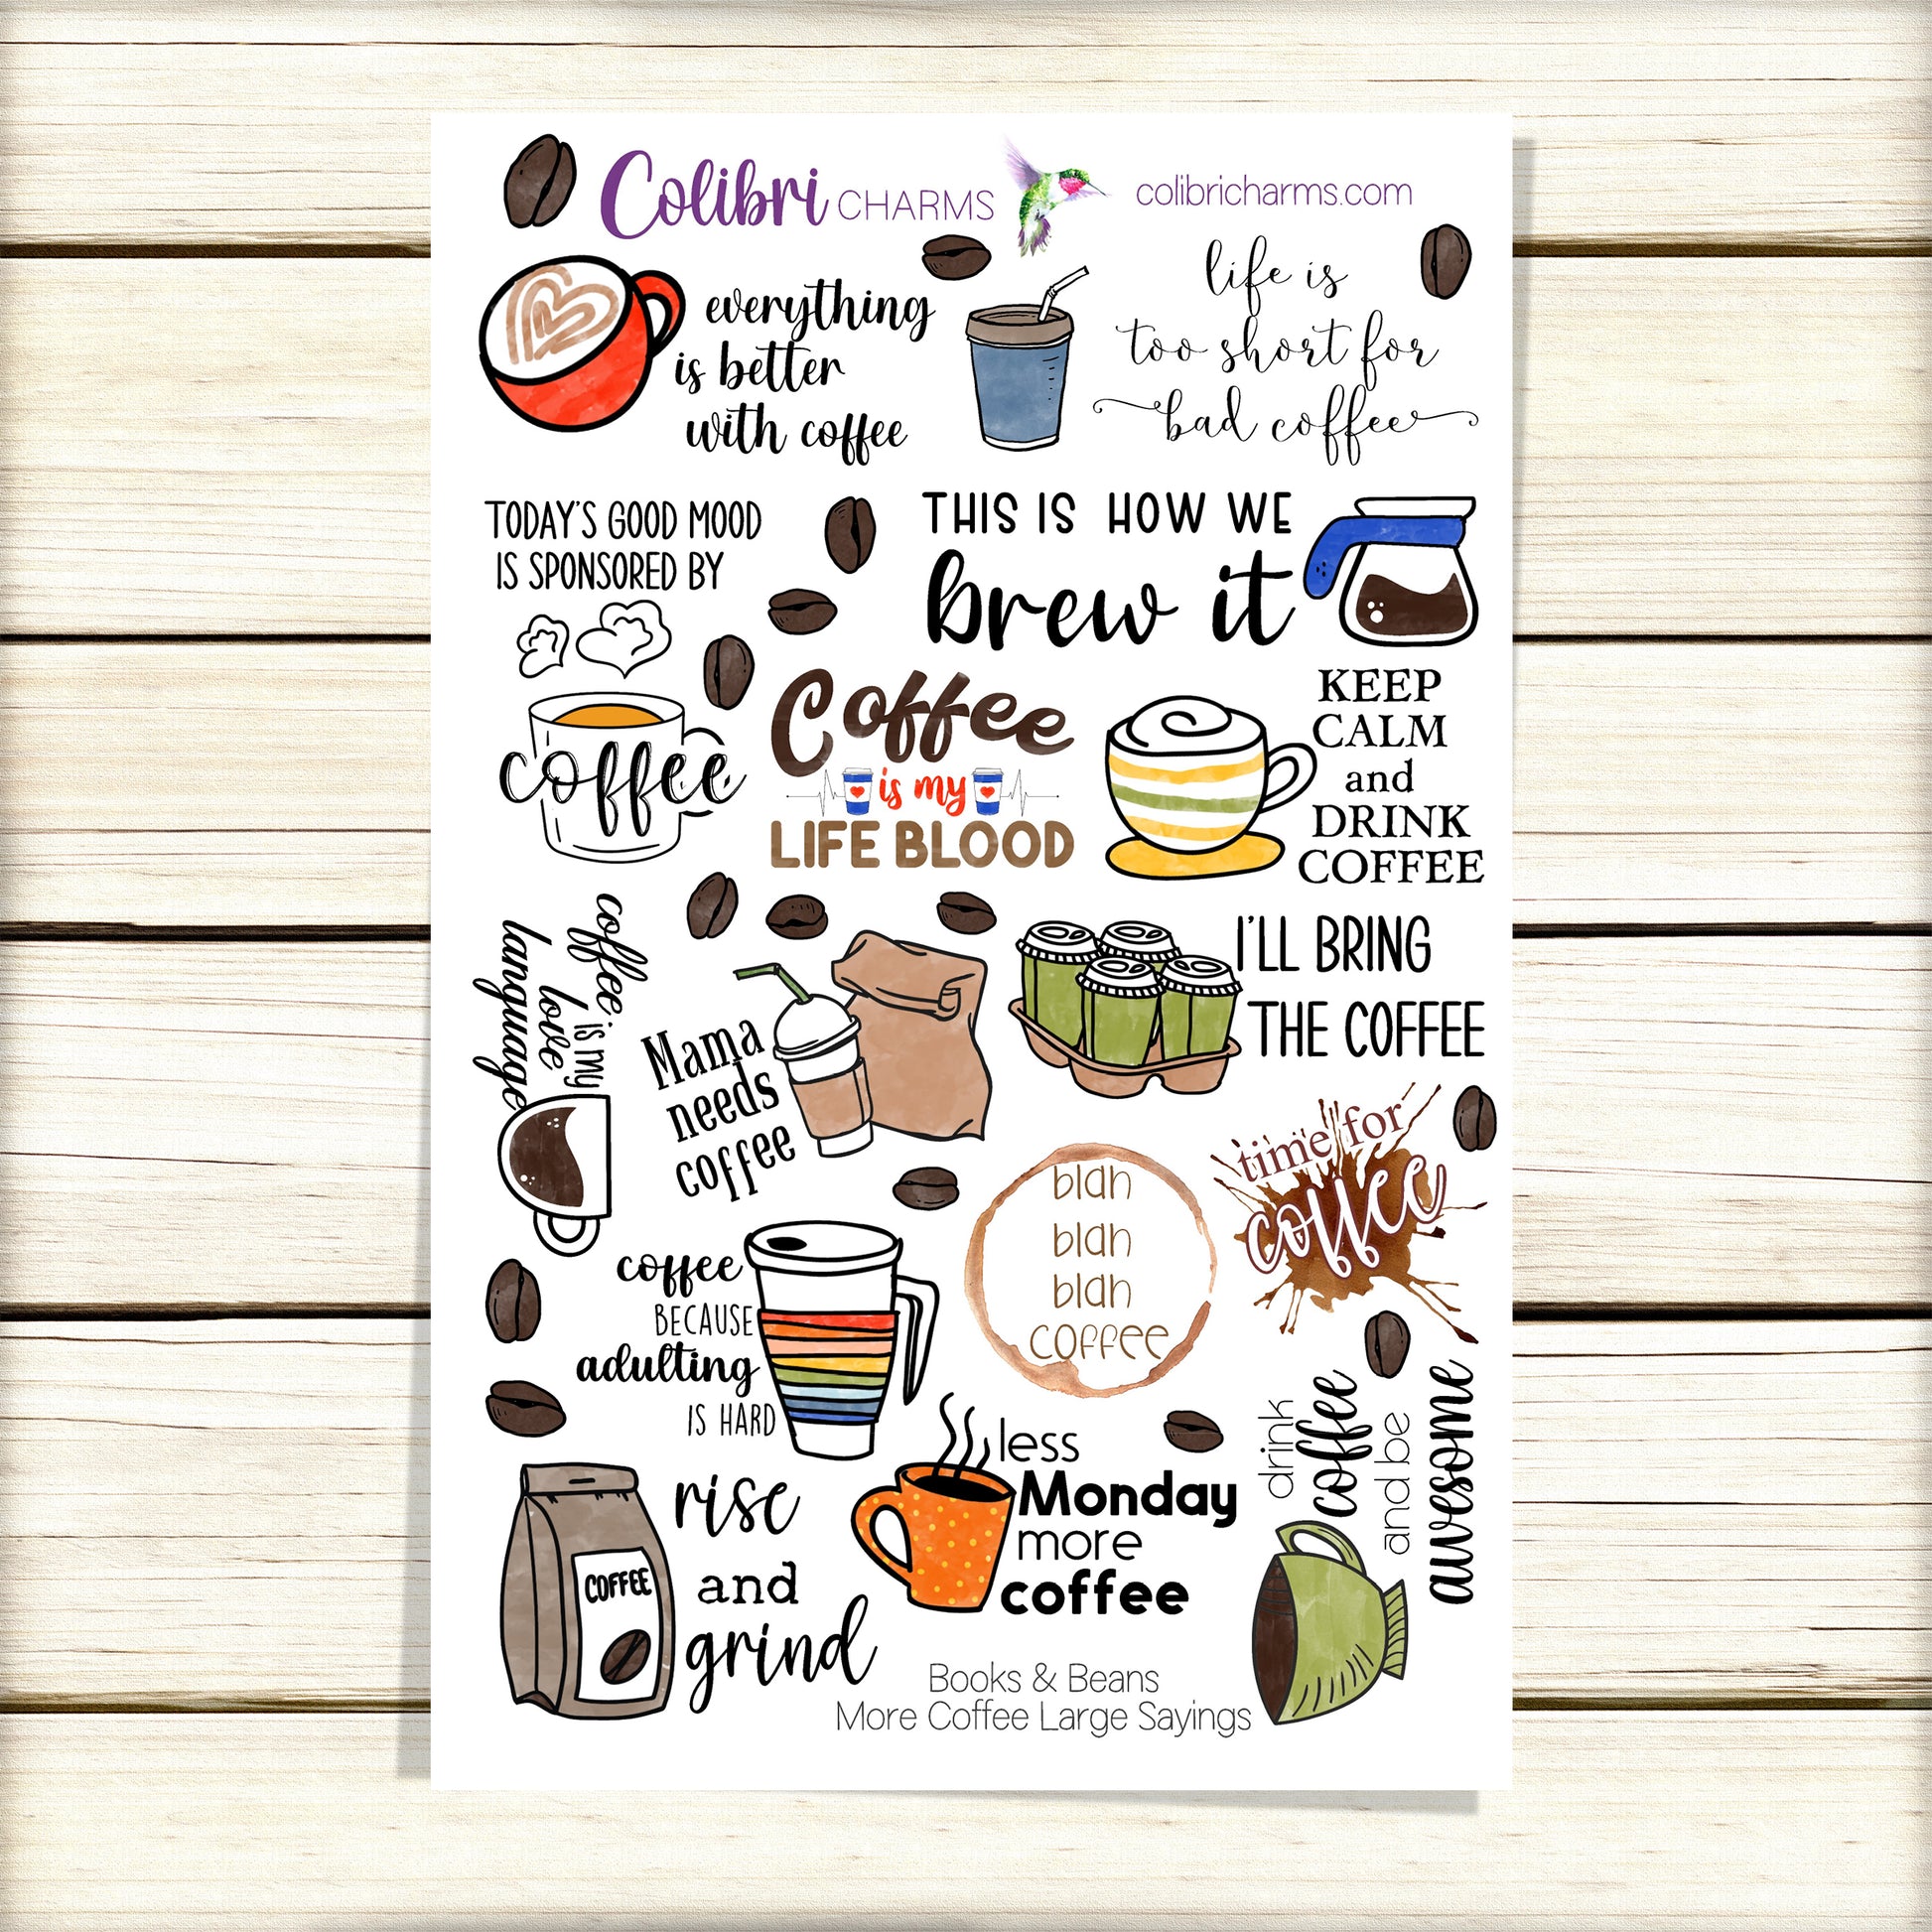 Colibri CHARMS
colibricharms.com
everything
is better
with coffee
life is
too short for
bad coffee
TODAY'S GOOD MOOD
IS SPONSORED BY
coffee
THIS IS HOW WE
brew it
Coffee
is my
LIFE BLOOD
KEEP
CALM
and
DRINK
COFFEE
coffee
is my
love
language
Mama
needs
coffee
I'LL BRING
THE COFFEE
time for
coffee
blah
blah
blah
coffee
coffee
BECAUSE
adulting
IS HARD
COFFEE
rise
and
grind
less
Monday
more
coffee
drink
coffee
and be
awesome
Books & Beans
More Coffee Large Sayings